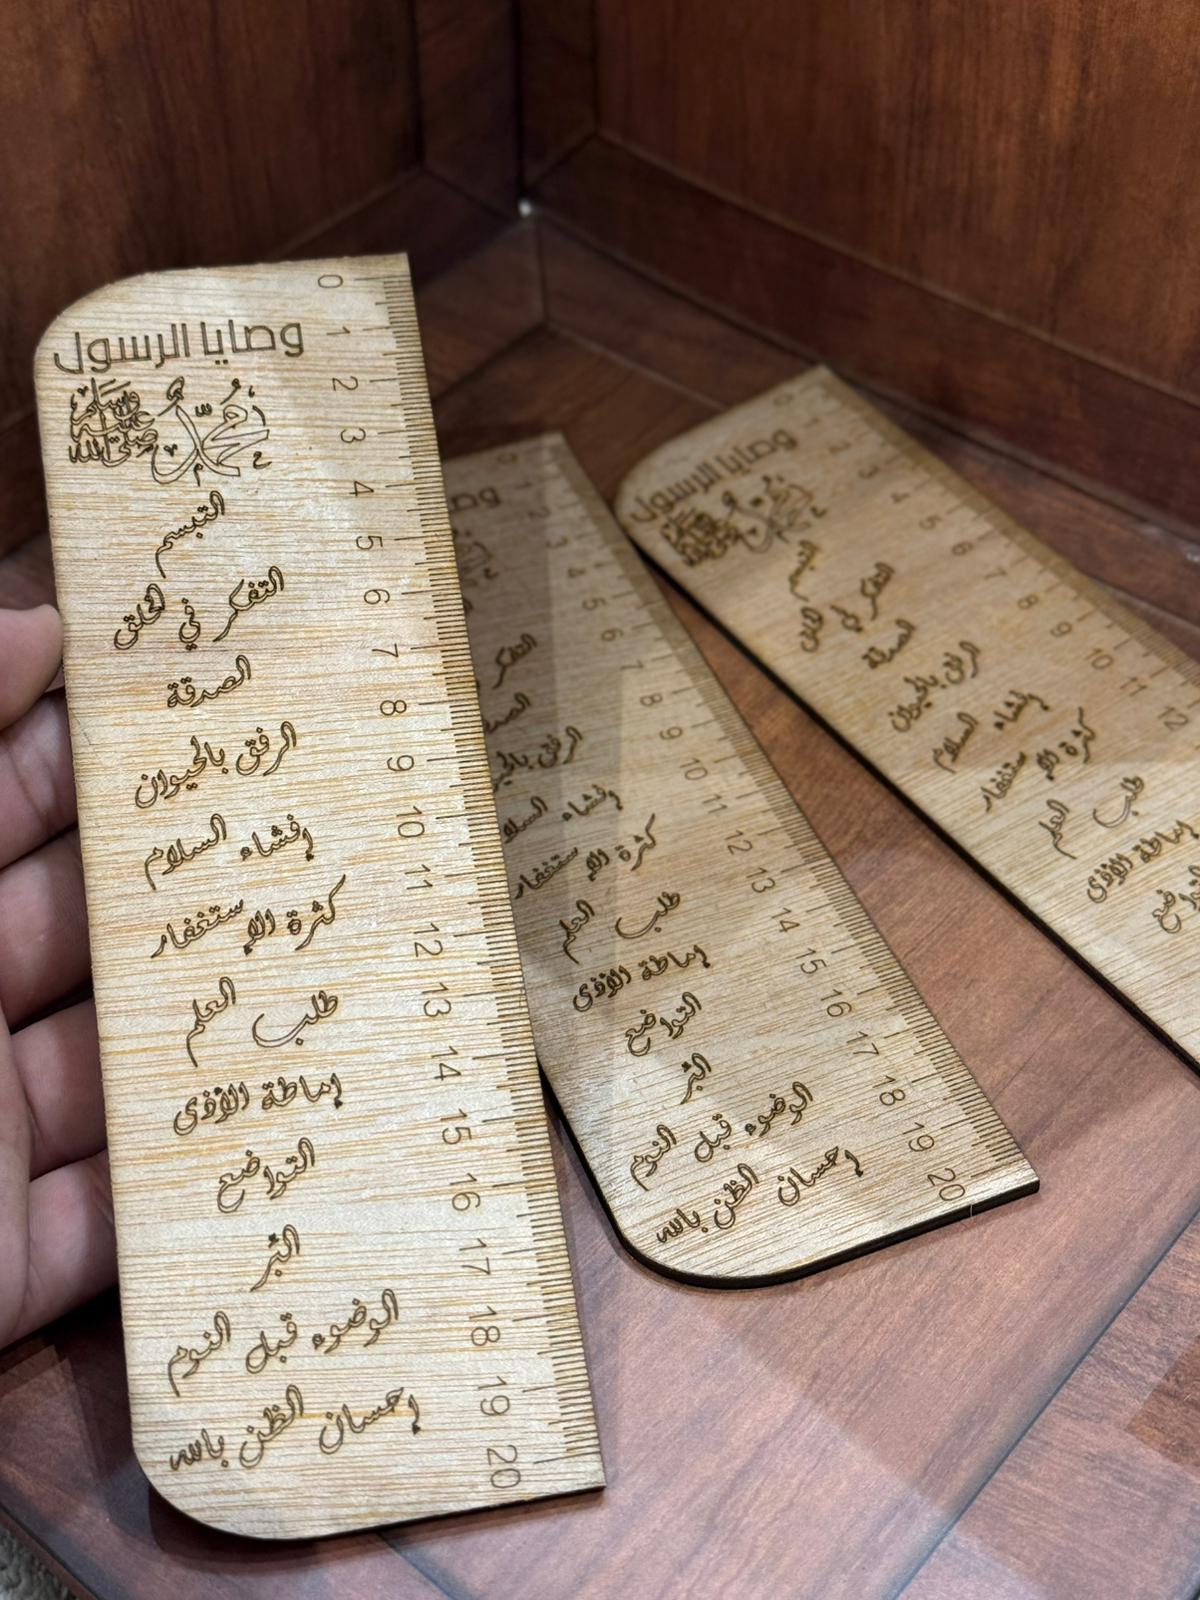 وصايا الرسول
محمد صلى الله عليه وسلم
التبسم
التفكر في الخلق
الصدقة
الرفق بالحيوان
إفشاء السلام
كثرة الإستغفار
طلب العلم
إماطة الأذى
التواضع
البر
الوضوء قبل النوم
إحسان الظن بالله
0
1
2
3
4
5
6
7
8
9
10
11
12
13
14
15
16
17
18
19
20
التفكر
الرفق
إفشاء السلام
كثرة الإستغفار
طلب العلم
إماطة الأذى
التواضع
البر
الوضوء قبل النوم
إحسان الظن بالله
0
1
2
3
4
5
6
7
8
9
10
11
12
13
14
15
16
17
18
19
20
وصايا الرسول
محمد صلى الله عليه وسلم
التبسم
التفكر في الخلق
الصدقة
الرفق بالحيوان
إفشاء السلام
كثرة الإستغفار
طلب العلم
إماطة الأذى
0
1
2
3
4
5
6
7
8
9
10
11
12